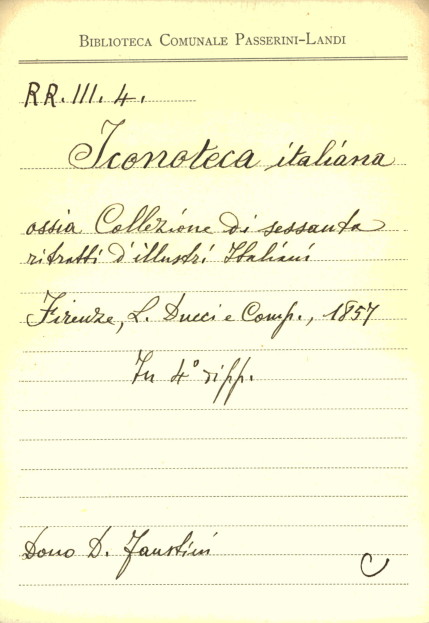 BIBLIOTECA COMUNALE PASSERINI-LANDI
RR. III. 4.
Iconoteca italiana
ossia Collezione di sessanta
ritratti d'illustri Italiani
Firenze, L. Ducci e Comp., 1857
In 4° di pp.
Dono D. Faustini
C